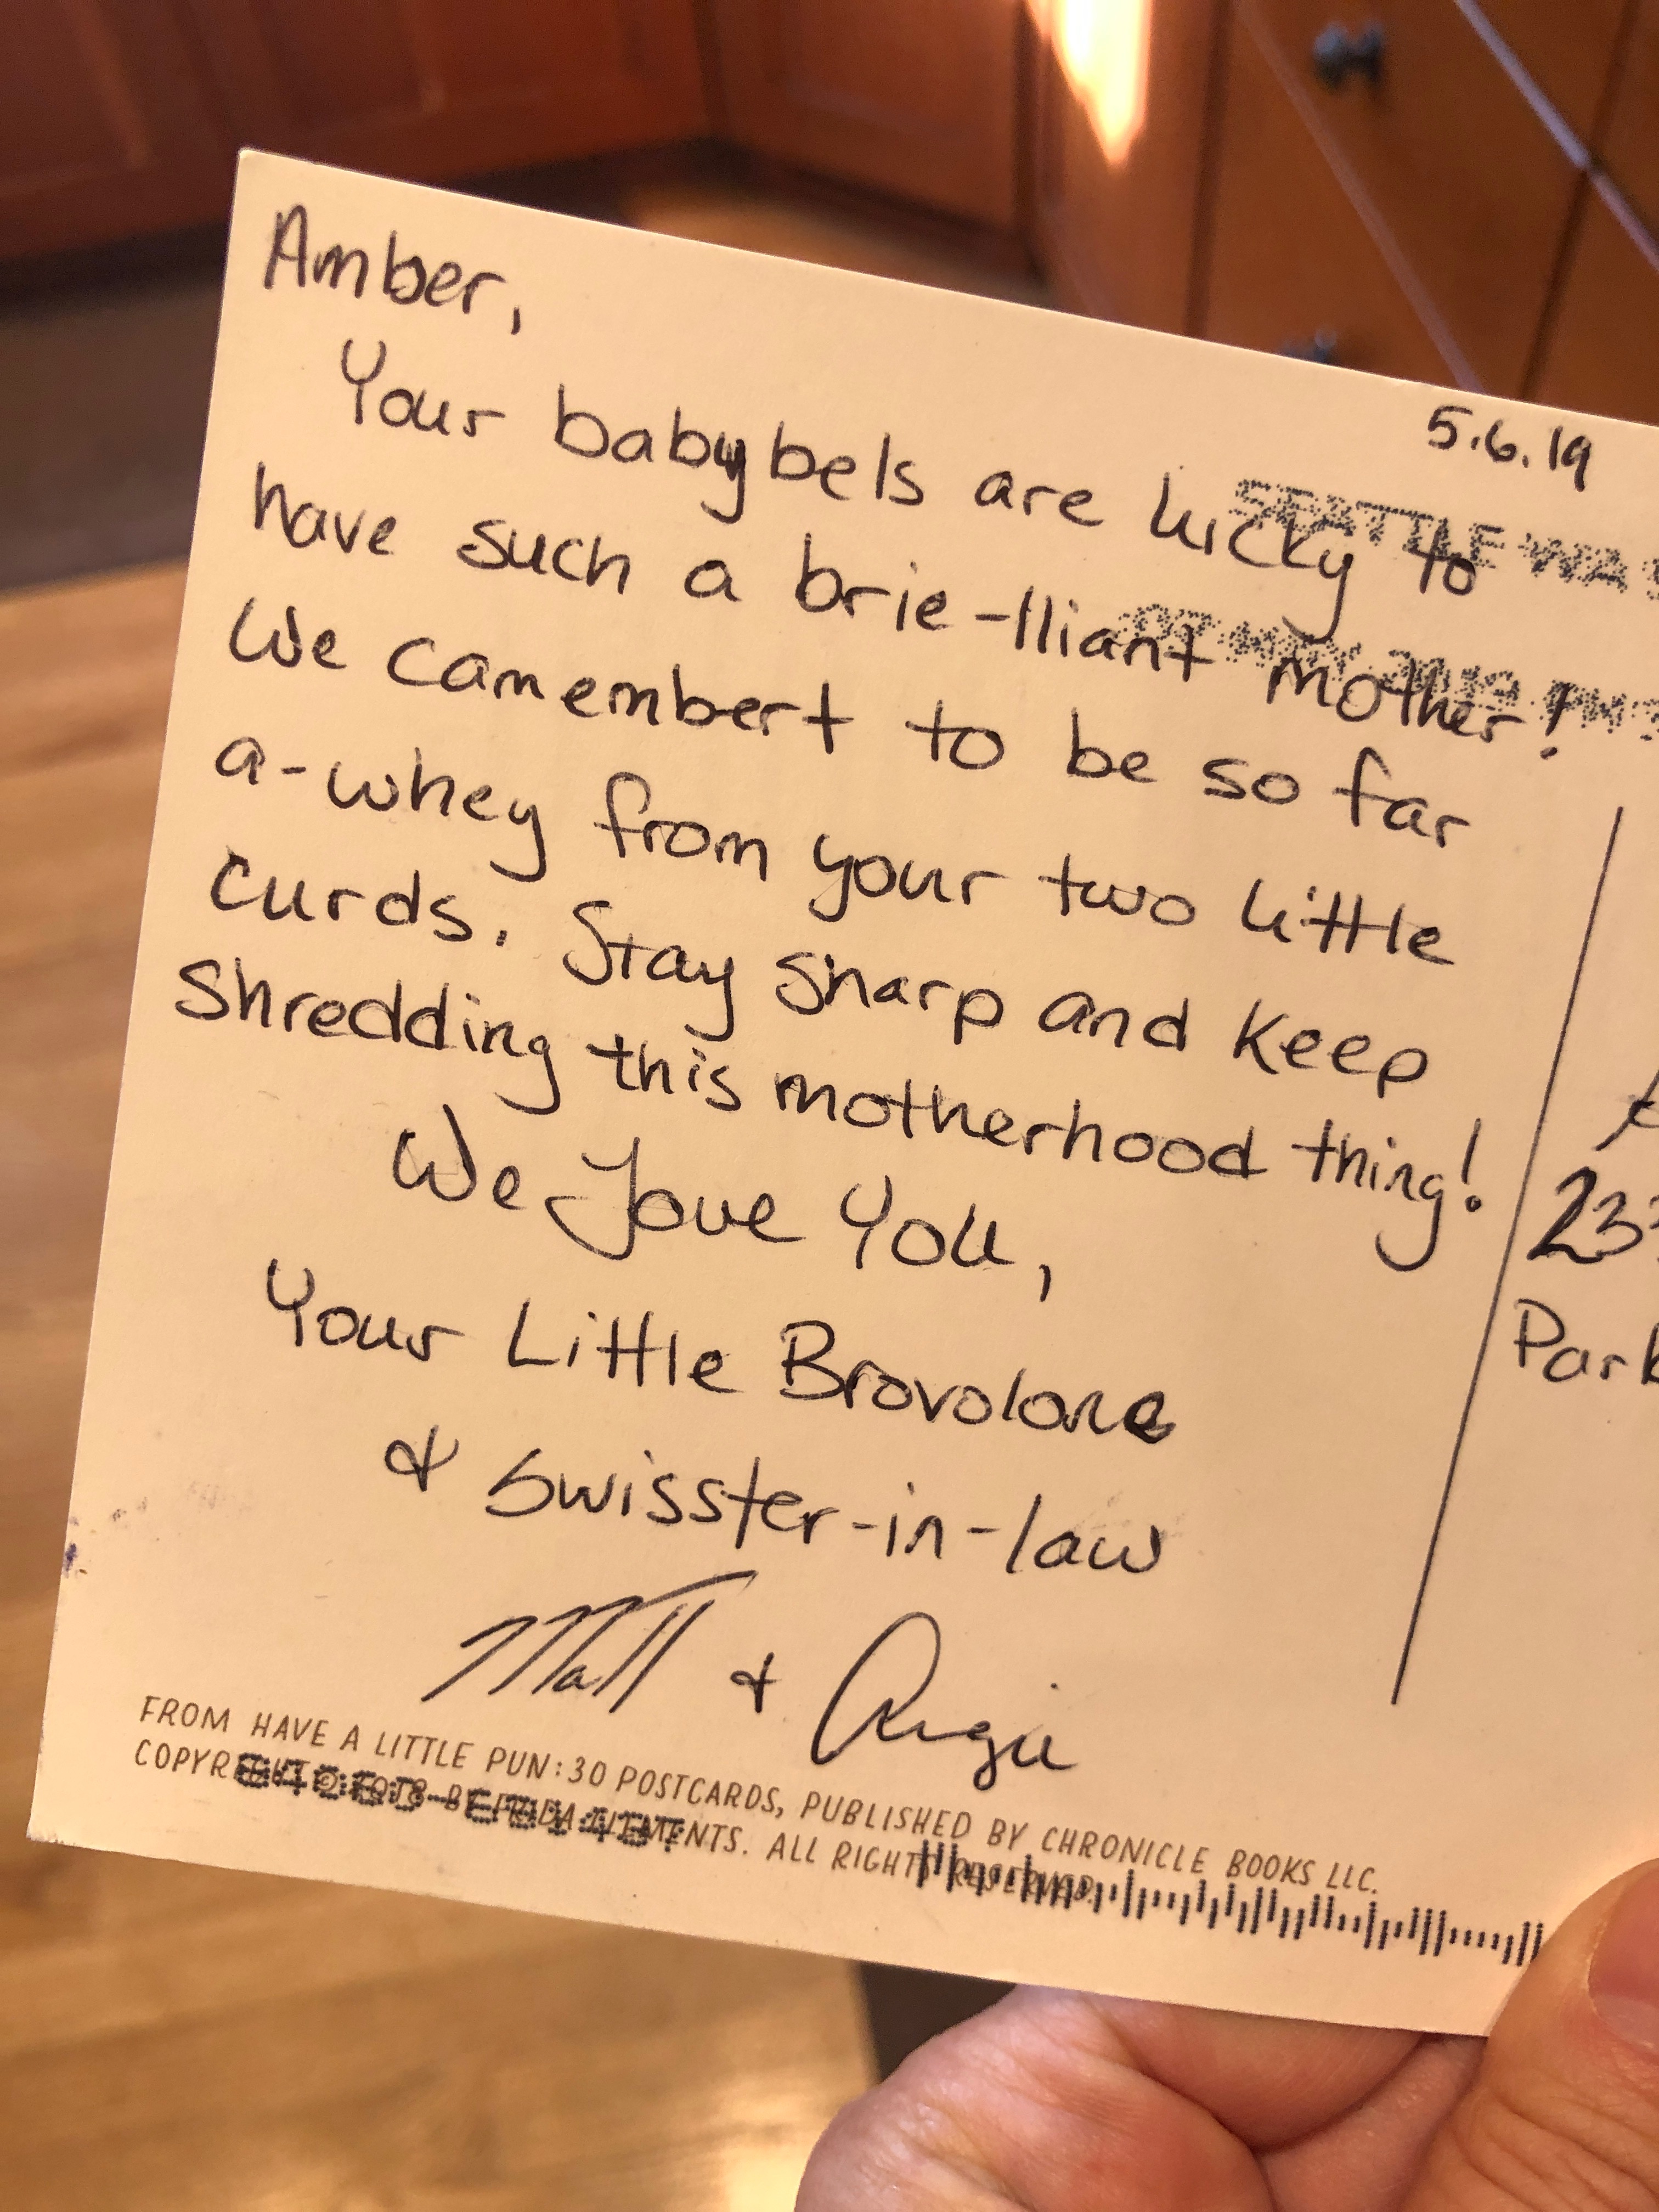 Amber,
5.6.19
Your babybels are lucky to
have such a brie-lliant mother!
We camembert to be so far
a-whey from your two little
curds. Stay sharp and keep
shredding this motherhood thing!
We Love You,
Your Little Brovolone
& Swisster-in-law
Matt & Angie
SEATTLE WA
07 MAY 2019 PM
233
Park
FROM HAVE A LITTLE PUN: 30 POSTCARDS, PUBLISHED BY CHRONICLE BOOKS LLC.
COPYRIGHT © 2018 BY FRIDA CLEMENTS. ALL RIGHTS RESERVED.